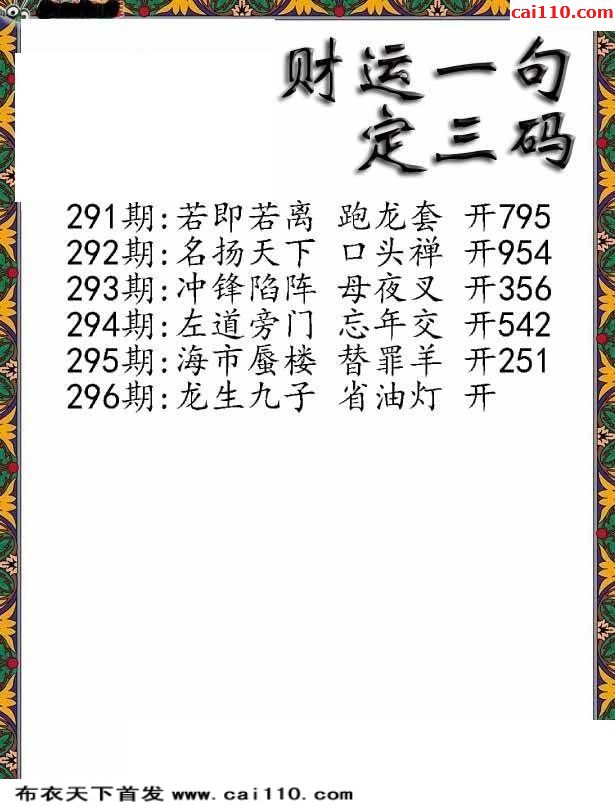 cai110.com
财运一句
定三码
291期:若即若离 跑龙套 开795
292期:名扬天下 口头禅 开954
293期:冲锋陷阵 母夜叉 开356
294期:左道旁门 忘年交 开542
295期:海市蜃楼 替罪羊 开251
296期:龙生九子 省油灯 开
布衣天下首发 www.cai110.com